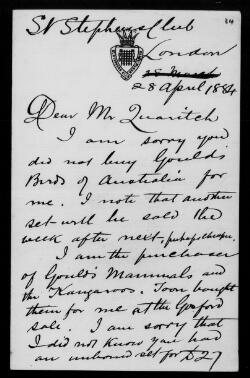 34
St Stephens Club
London
28 March
28 April 1884
Dear Mr Quaritch
I am sorry you
did not buy Gould's
Birds of Australia for
me. I note that another
set will be sold the
week after next, perhaps cheaper.
I am the purchaser
of Gould's Mammals and
the Kangaroos. Toon bought
them for me at the Gosford
sale. I am sorry that
I did not know you had
an unbound set for £27